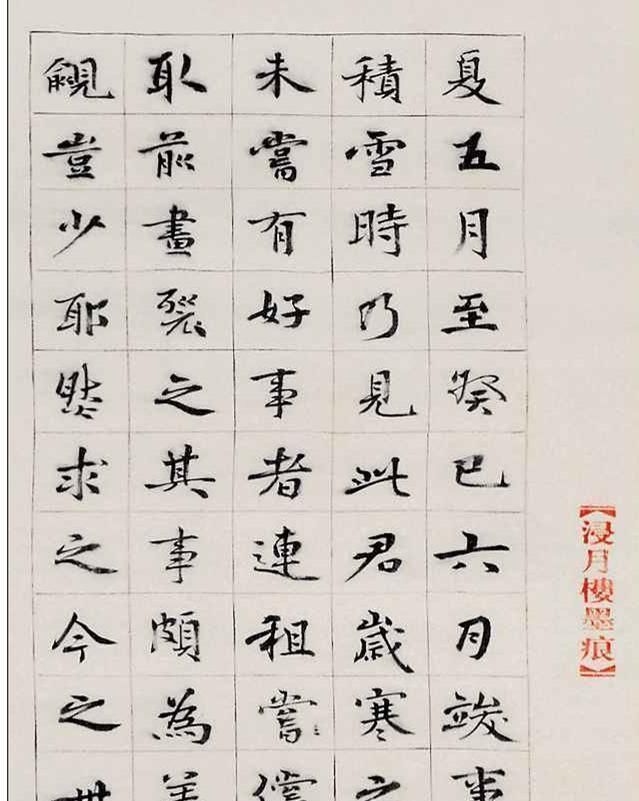 夏五月至癸巳六月竣事
積雪時乃見此君歲寒之
未嘗有好事者連租嘗償
取前畫裂之其事頗為
覦豈少耶然求之今之世
【浸月樓墨痕】